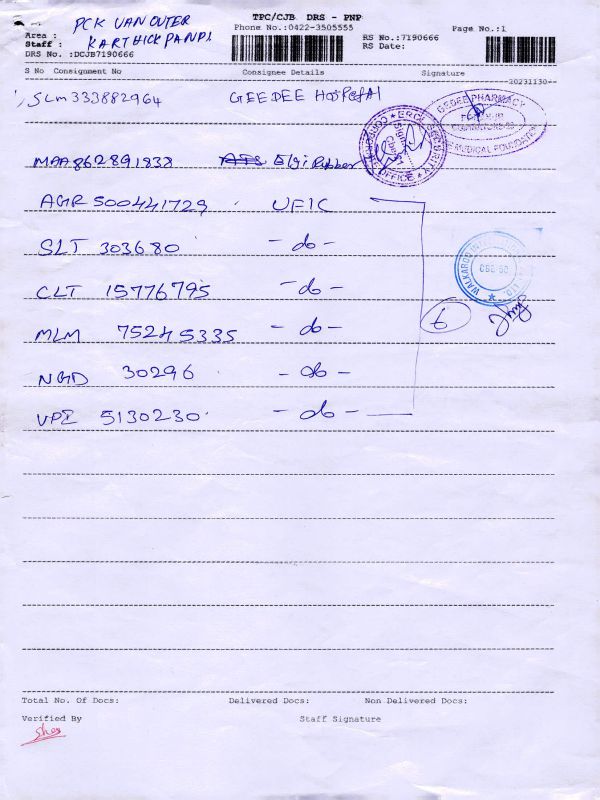 TPC/CJB DRS - PNP
PCK VAN OUTER
Phone No.:0422-3505555
Page No.:1
Area :
RS No.:7190666
Staff : KARTHICK PANDI
RS Date:
DRS No. :DCJB7190666
S No Consignment No Consignee Details Signature
20231130
SLM333882964 GEEDEE HOSPITAL
GEDEE PHARMACY
MEDICAL FOUNDATION
SECURITY OFFICE
MAA862891838 Elgi Rubber
AGR 500441729 UFIC
SLT 303680 - do -
WALKAROO INTERNATIONAL LTD.
CLT 15776795 - do -
6
MLM 75245335 - do -
NGD 30296 - do -
VPI 5130230 - do -
Total No. Of Docs: Delivered Docs: Non Delivered Docs:
Verified By Staff Signature